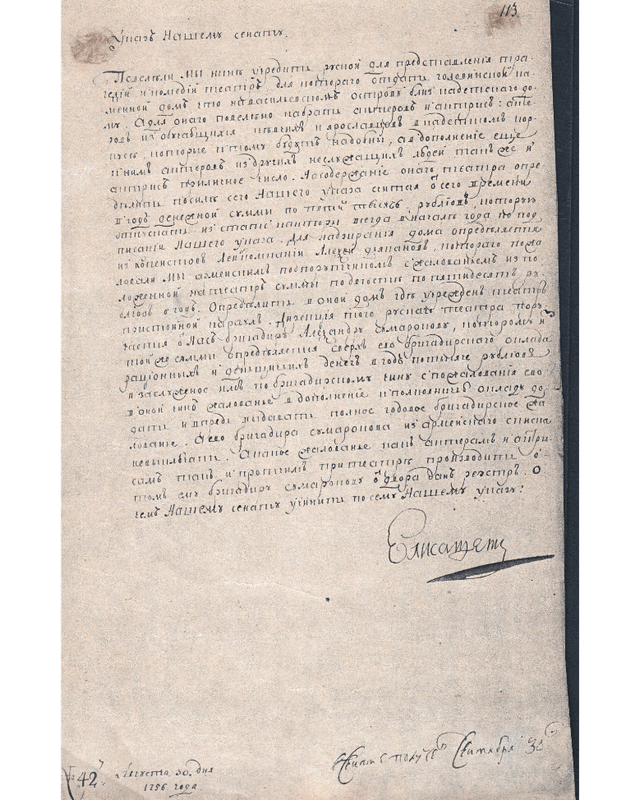 113
Указъ Нашему сенату.
Повелели мы нынѣ учредить руской для представленія тра
гедій и комедій театръ, для котораго отдать головинской ка
менной домъ, что на васильевскомъ острову близ кадетскаго до
му. А для онаго повелено набрать актеровъ и актрисъ: акте
ровъ изъ обучающихся певчихъ и ярославцовъ в кадетскомъ кор
пусе, которые к тому будутъ надобны, а в дополненіе еще
к нимъ актеровъ из другихъ неслужащихъ людей такъ же и
актрисъ приличное число. На содержаніе онаго театра опре
делить по силе сего Нашего указа считая от сего времени
в годъ денежной суммы по 5000 тысячъ рублевъ, которую
отпускать из статсъ канторы всегда в начале года по под
писаніи Нашего указа. Для надзиранія дома определяется
из копеистовъ Лейбкомпаніи Алексѣй дьяконовъ, котораго пожа
ловали мы армейскимъ подпорутчикомъ с жалованьемъ из по
ложенной на театръ суммы по двести по пятидесятъ ру
блевъ в годъ. Определить в оной домъ где учрежденъ театръ
пристойной караулъ. Дирекція того рускаго театра пору
чается от Насъ бригадиру Александру Сумарокову, которому из
той же суммы определяется сверхъ его бригадирскаго оклада
раціонныхъ и деньщичьихъ денегъ в годъ по тысяче рублевъ
и заслуженое имъ по бригадирскому чину с пожалованія ево
в оной чинъ жалованье в дополненіе к полковничью окладу до
дать и впредь выдавать полное годовое бригадирское жа
лованье. А ево бригадира сумарокова из армейскаго списка
не выключать. А какое жалованье какъ актерамъ и актри
самъ такъ и протчимъ при театре производить о
томъ ему бригадиру сумарокову от двора данъ реэстръ. О
чемъ Нашему сенату учинить по сему Нашему указу:
Елисаветъ
Августа 30. дня
1756 года
42
Сентября 3г